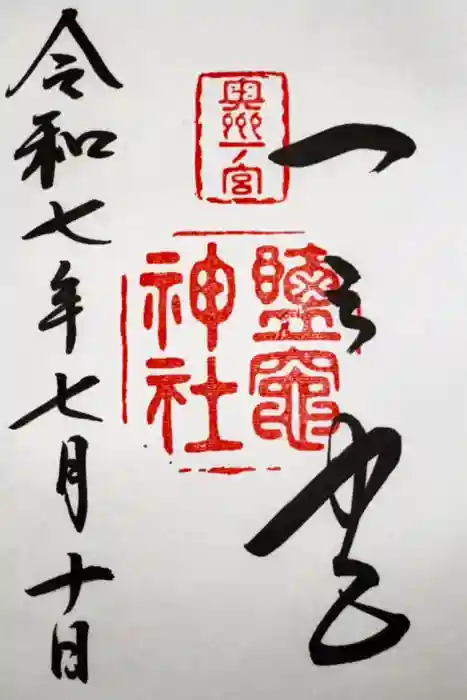 一之宮
奥州一宮
鹽竈
神社
令和七年七月十日